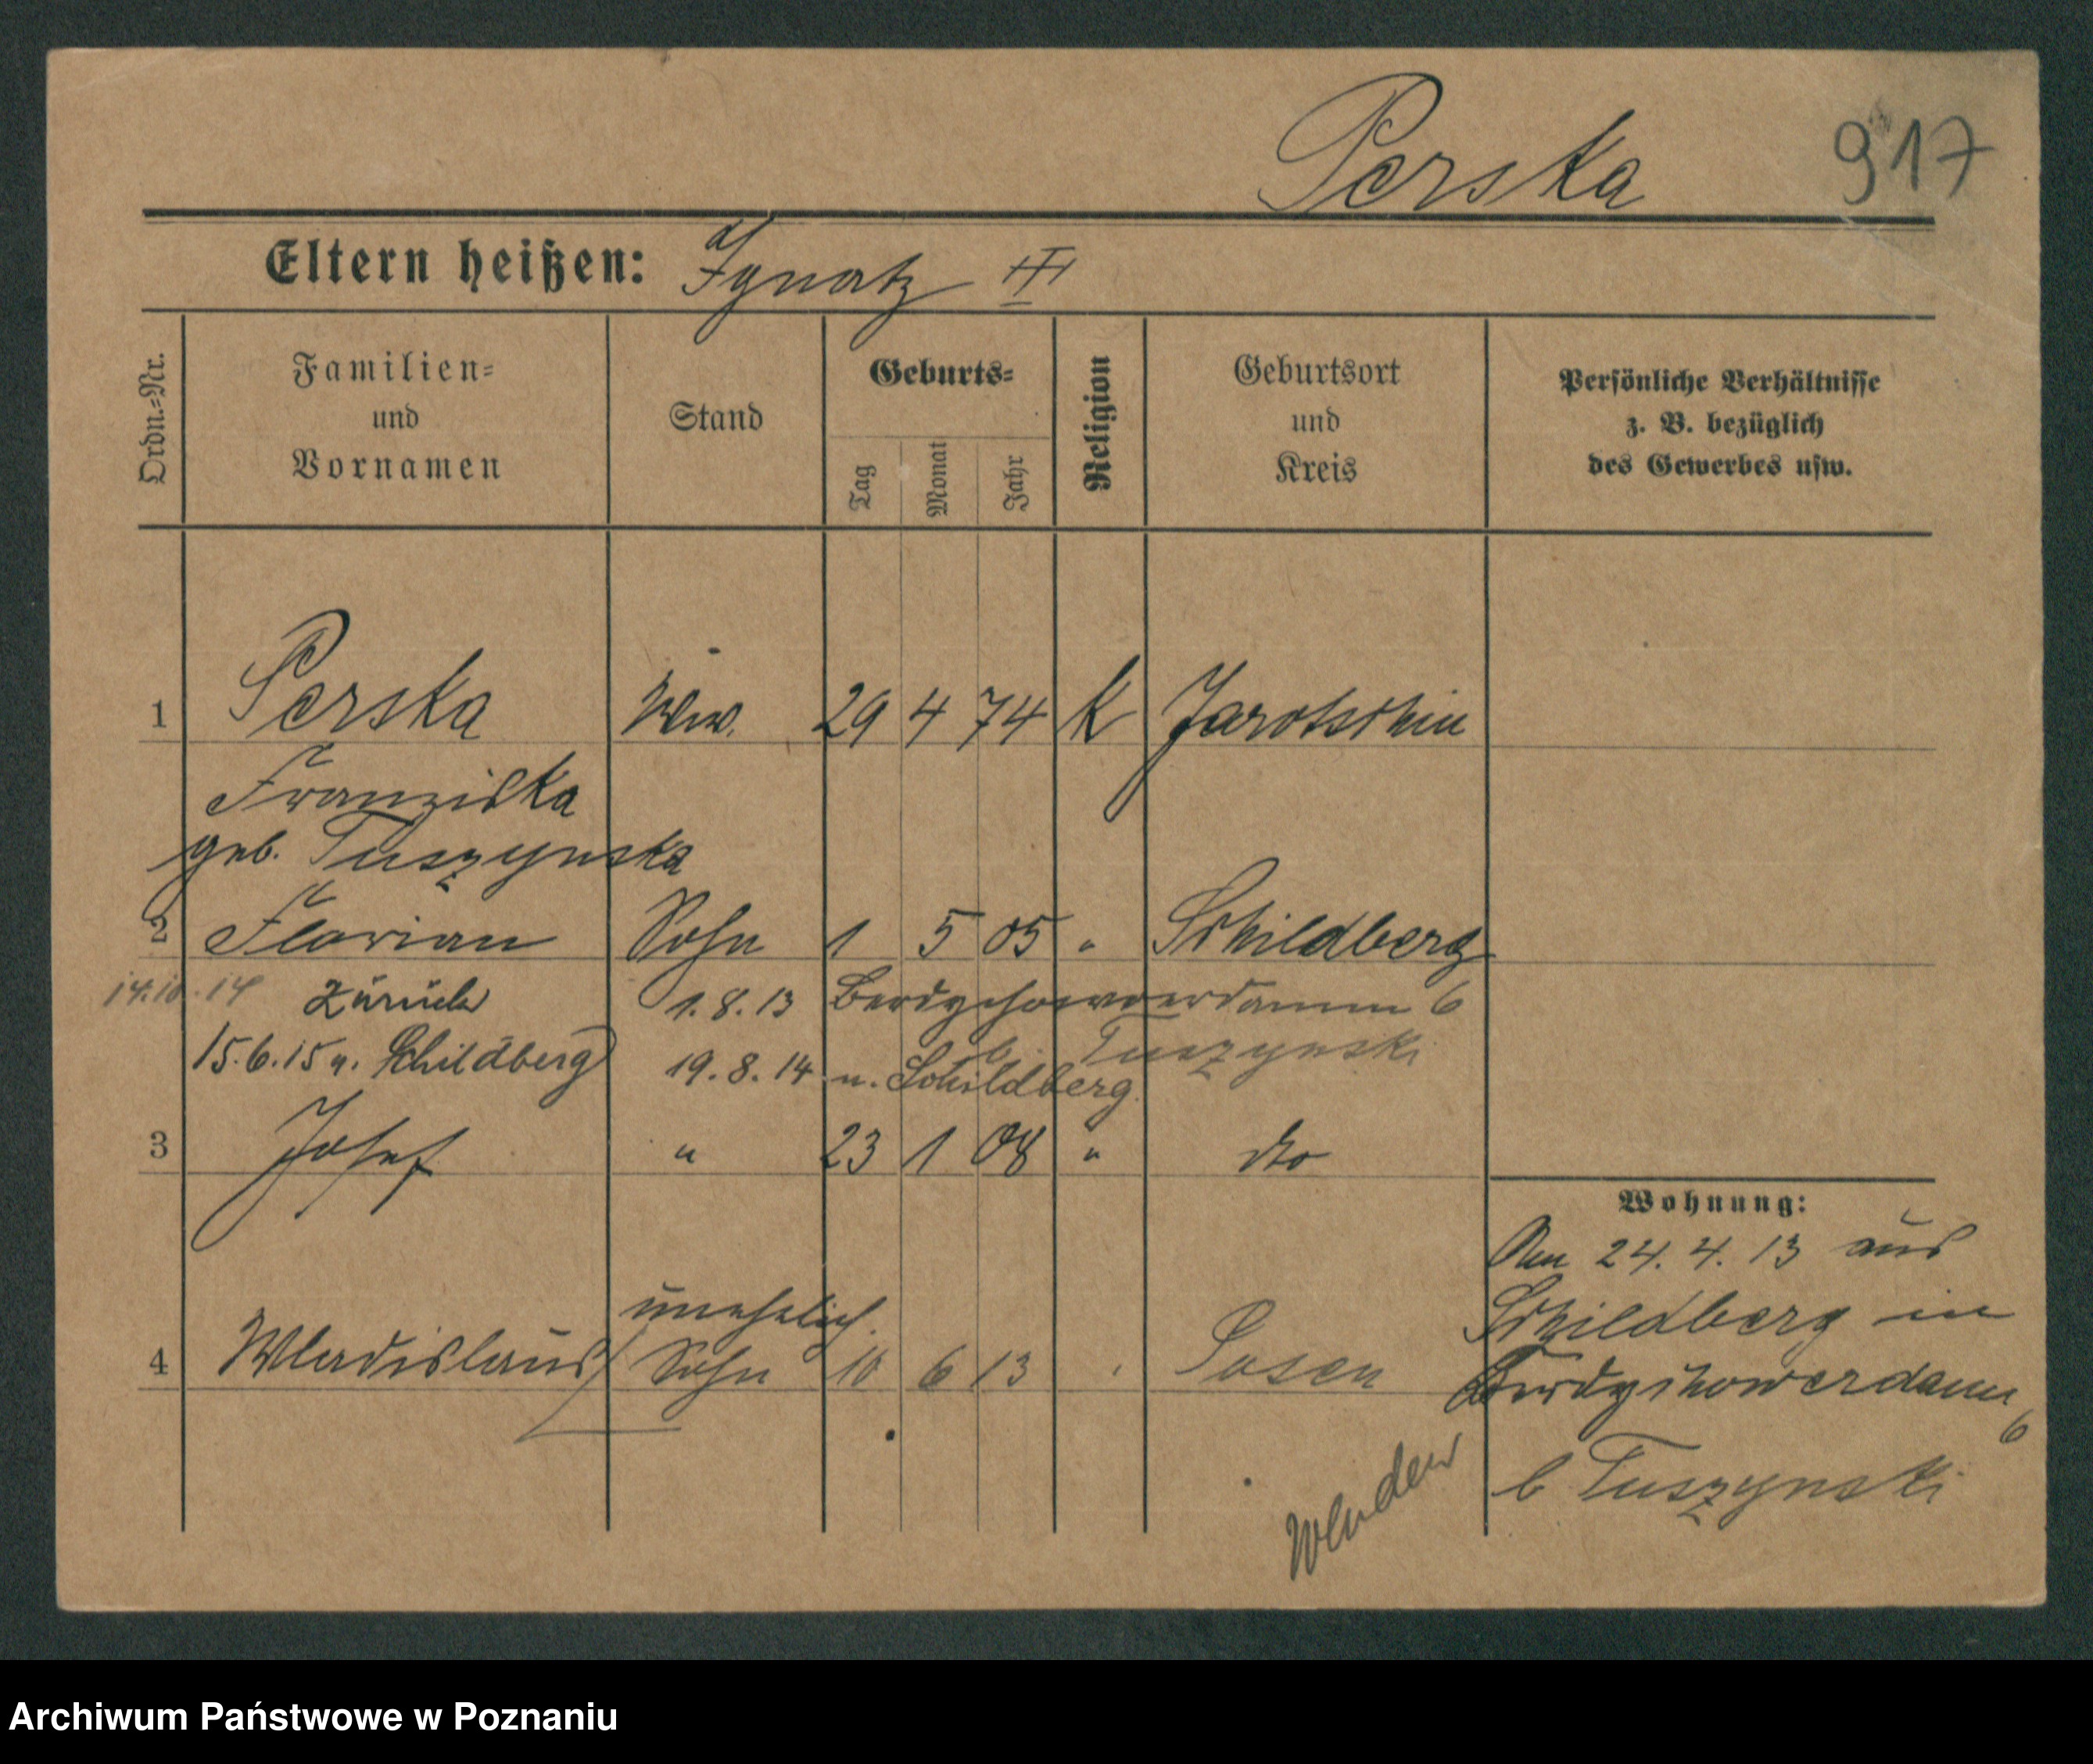 Perska 917
Eltern heißen: Ignatz III
Ordn.-Nr.
Familien-
und
Vornamen
Stand
Geburts-
Tag
Monat
Jahr
Religion
Geburtsort
und
Kreis
Persönliche Verhältnisse
z. B. bezüglich
des Gewerbes usw.
1 Perska Wiw. 29 4 74 K Jarotschin
Franziska
geb. Tuszynska
2 Florian Sohn 1 5 05 " Schildberg
14.10.14 zurück 1.8.13 Berdychowoerdamm 6
b. Tuszynski
15.6.15 n. Schildberg 19.8.14 n. Schildberg.
3 Josef " 23 1 08 " dto
Wohnung:
Am 24.4.13 aus
Schildberg in
Berdychowerdamm
6
b Tuszynski
unehelich.
4 Wladislaus Sohn 10 6 13 Posen
Wenden
Archiwum Państwowe w Poznaniu